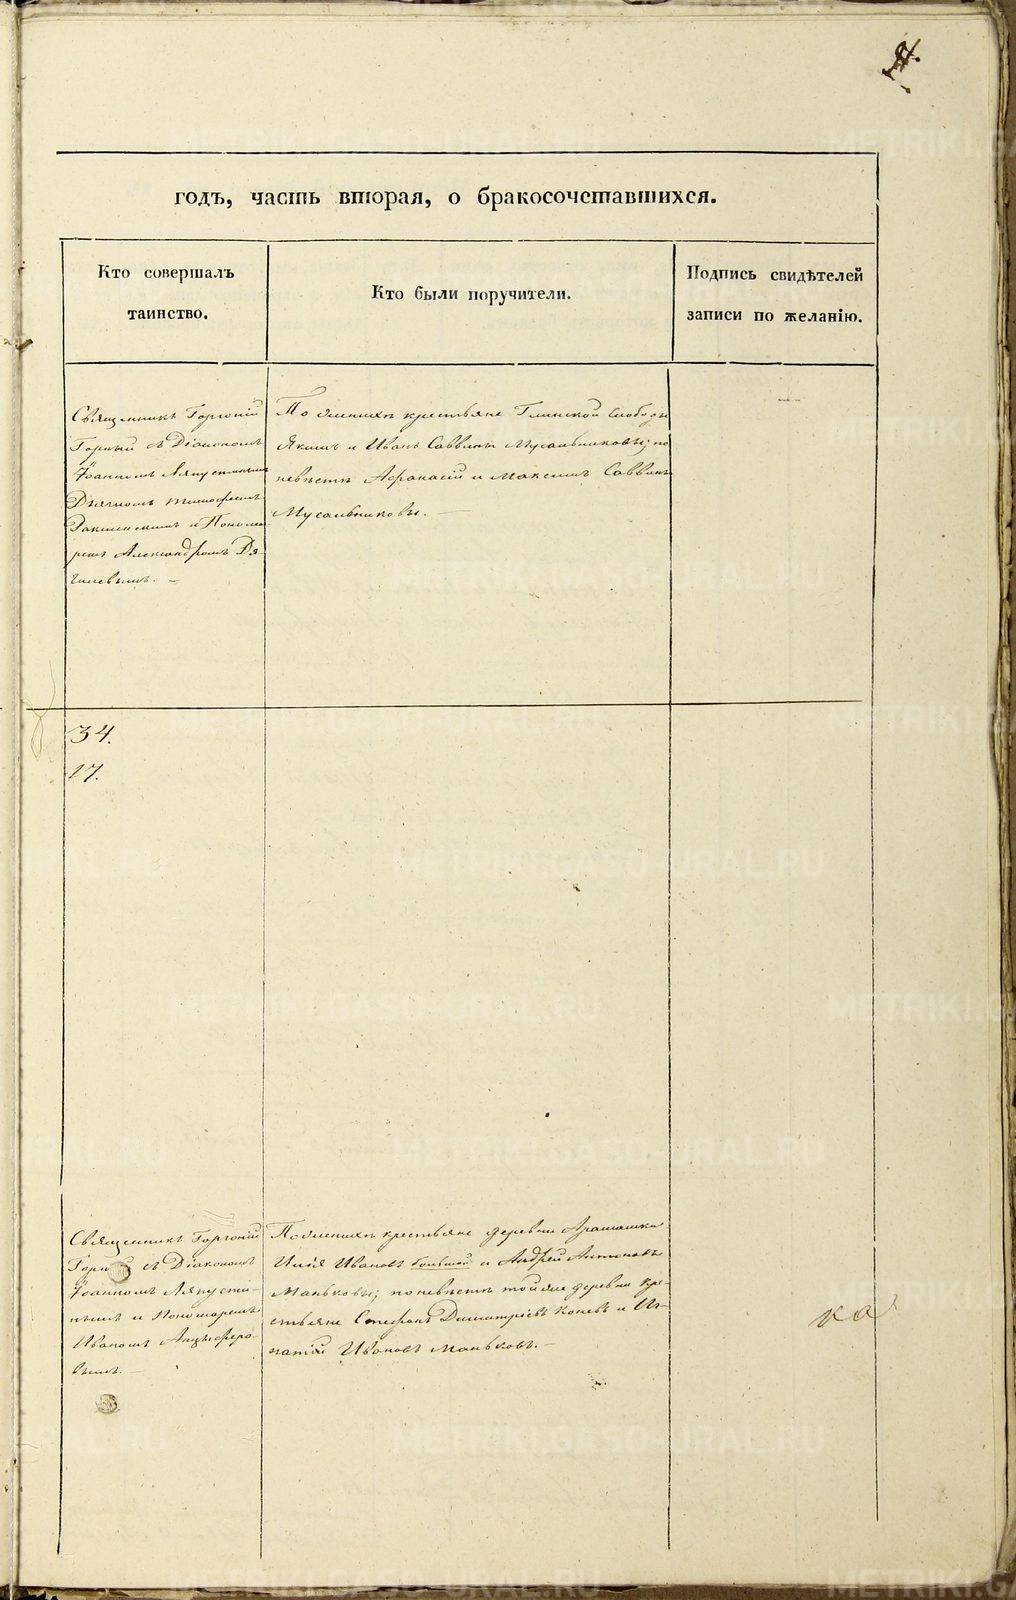 годъ, часть вторая, о бракосочетавшихся.
Кто совершалъ
таинство.
Кто были поручители.
Подпись свидѣтелей
записи по желанію.
Священникъ Горгоній
Горный съ Діакономъ
Іоанномъ Ляпустинымъ
Дьячкомъ Тимофеемъ
и Понома-
ремъ Александромъ Дя-
гилевымъ. –
По женихѣ крестьяне Глинской слободы
Якимъ и Иванъ Саввины Мусальниковы; по
невѣстѣ Афанасій и Максимъ Саввины
Мусальниковы. –
34.
17.
Священникъ Горгоній
Горный съ Діакономъ
Іоанномъ Ляпусти-
нымъ и Пономаремъ
Иваномъ Анцыферо-
вымъ. –
По женихѣ крестьяне деревни Арамашки
Илья Ивановъ большой и Андрей Антоновъ
Маньковы; по невѣстѣ той же деревни кре-
стьяне Стефанъ Димитріевъ Коневъ и Иг-
натій Ивановъ Маньковъ. –
ка
METRIKI.GASO-URAL.RU